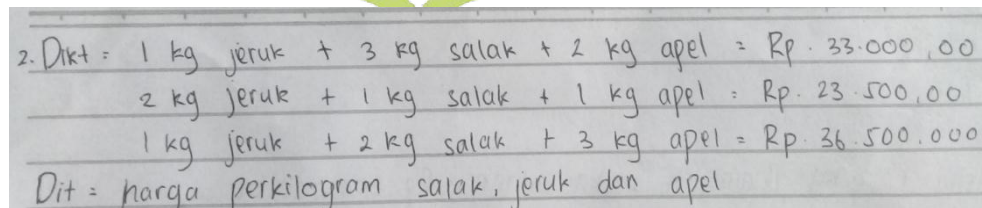 2. Dikt = 1 kg jeruk + 3 kg salak + 2 kg apel = Rp. 33.000,00
2 kg jeruk + 1 kg salak + 1 kg apel = Rp. 23.500,00
1 kg jeruk + 2 kg salak + 3 kg apel = Rp. 36.500.000
Dit = harga perkilogram salak, jeruk dan apel